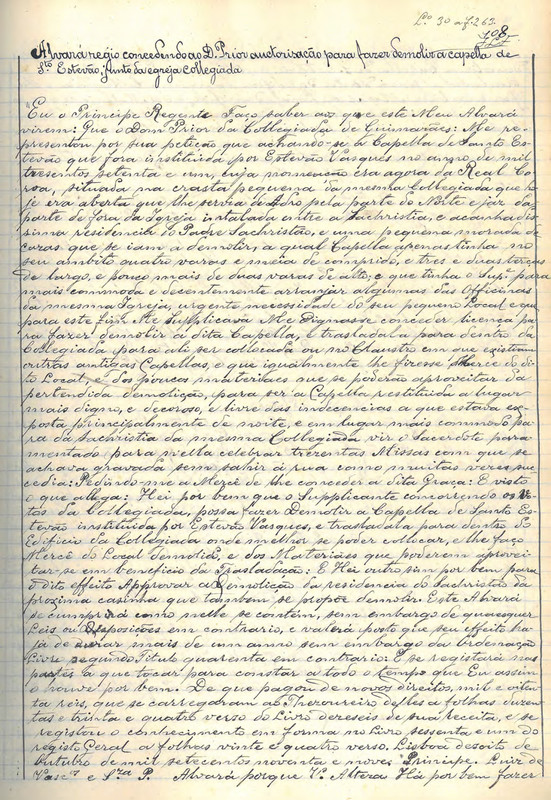 Lº 30 a f. 263.
708
Alvará regio concedendo ao D. Prior auctorisação para fazer demolir a capella de
Sto Estevão, junto da egreja collegiada
"Eu o Principe Regente Faço saber aos que este Meu Alvará
virem: Que o Dom Prior da Collegiada de Guimarães: Me re-
presentou por sua petição que achando-se a Capella de Santo Es-
tevão que fora instituida por Estevão Vasques no anno de mil
tresentos setenta e um, cuja nomeação era agora da Real Co-
roa, situada na crasta pequena da mesma Collegiada que ho-
je era aberta que lhe servia de Adro pela parte do Norte e jaz da
parte de fora da Igreja intalada entre a Sachristia, e acanhadis-
sima residencia do Padre Sachristão, e uma pequena morada de
cazas que se iam a demolir, a qual Capella apenas tinha no
seu ambito quatro varas e meia de comprido, e tres e duas terças
de largo, e pouco mais de duas varas de alto, e que tinha o Supe para
mais commoda e decentemente arranjar algumas das Officinas
da mesma Igreja, urgente necessidade do seu pequeno Local e que
para este fim Me Supplicava Me Dignasse conceder licença pa-
ra fazer demolir a dita Capella, e trasladal-a para dentro da
Collegiada para ali ser collocada ou no Claustro em que existem
outras antigas Capellas, e que igualmente lhe fizesse Mercê do di-
to Local, e dos poucos materiaes que se poderão aproveitar da
pertendida demolição, para ser a Capella restituida a lugar
mais digno, e decoroso, e livre das indecencias a que estava ex-
posta principalmente de noite, e em lugar mais commodo pa-
ra da Sachristia da mesma Collegiada vir o Sacerdote para-
mentado para n'ella celebrar trezentas Missas com que se
achava gravada sem sahir á rua como muitas veses suc-
cedia: Pedindo-me a Mercê de lhe conceder a dita Graça: E visto
o que alega: Hei por bem que o Supplicante concorrendo os
da Collegiada, possa fazer Demolir a Capella de Santo Es-
tevão instituida por Estevão Vasques, e trasladal-a para dentro do
Edificio da Collegiada onde melhor se poder collocar, e lhe faço
Mercê do Local demolido, e dos Materiaes que poderem aprovei-
tar-se em beneficio da Trasladação: E Hei outro sim por bem para
o dito effeito Approvar a Demolição da residencia do Sachristão e da
proxima casinha que tambem se propõe demolir. Este Alvará
se cumprirá como nelle se contém, sem embargo de quaesquer
Leis ou Disposições em contrario, e valerá posto que seu effeito ha-
já de durar mais de um anno sem embargo da Ordenação
Livro segundo Titulo quarenta em contrario: E se registará nas
partes a que tocar para constar a todo o tempo que Eu assim
o houve por bem. De que pagou de novos direitos, mil e oiten-
ta reis, que se carregaram ao Thezoureiro delles a folhas duzen-
tas e trinta e quatro verso do Livro dezeseis de sua receita, e se
registou o conhecimento em forma no Livro sessenta e um do
registo Geral a folhas vinte e quatro verso. Lisboa desoito de
Outubro de mil setecentos noventa e nove. Principe. Luiz de
Vascos e Sza P. Alvará porque V. Alteza Há por bem fazer